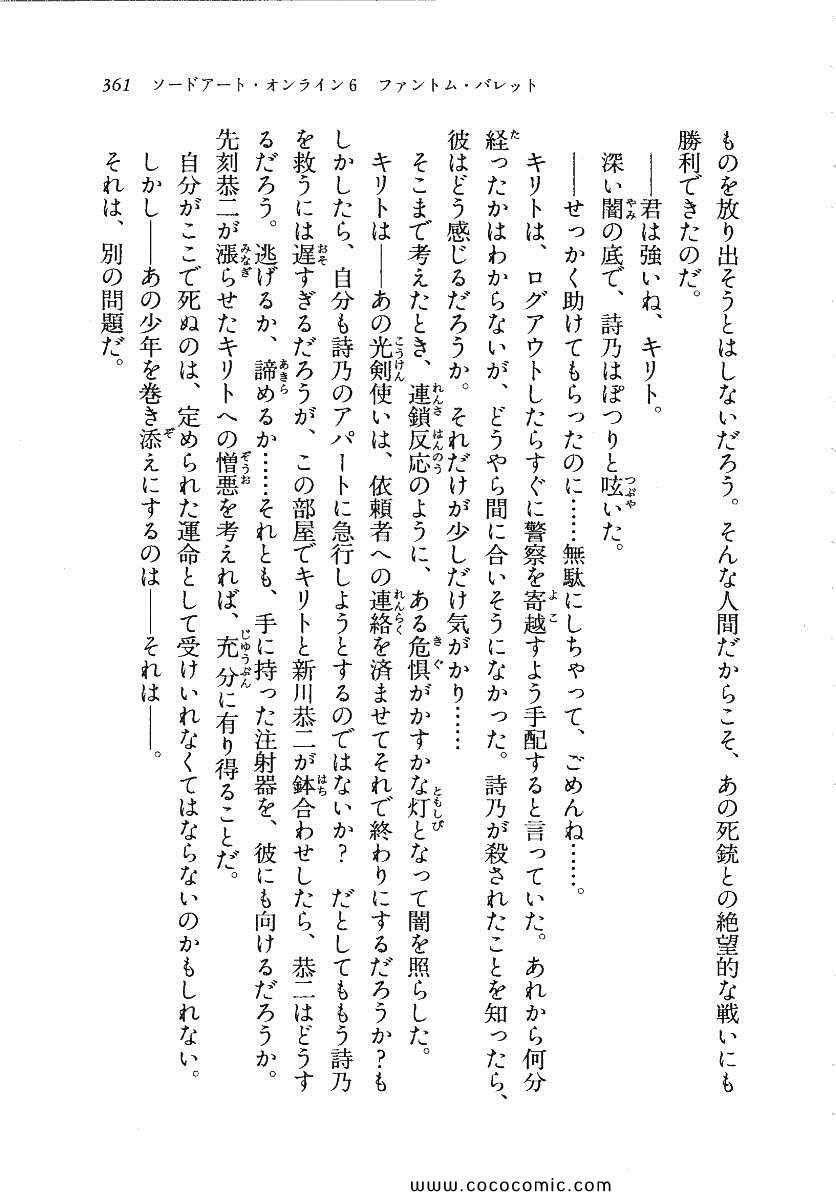 361 ソードアート・オンライン6 ファントム・バレット
ものを放り出そうとはしないだろう。そんな人間だからこそ、あの死銃との絶望的な戦いにも
勝利できたのだ。
――君は強いね、キリト。
深い闇の底で、詩乃はぽつりと呟いた。
――せっかく助けてもらったのに……無駄にしちゃって、ごめんね……。
キリトは、ログアウトしたらすぐに警察を寄越すよう手配すると言っていた。あれから何分
経ったかはわからないが、どうやら間に合いそうになかった。詩乃が殺されたことを知ったら、
彼はどう感じるだろうか。それだけが少しだけ気がかり……
そこまで考えたとき、連鎖反応のように、ある危惧がかすかな灯となって闇を照らした。
キリトは――あの光剣使いは、依頼者への連絡を済ませてそれで終わりにするだろうか？も
しかしたら、自分も詩乃のアパートに急行しようとするのではないか？ だとしてももう詩乃
を救うには遅すぎるだろうが、この部屋でキリトと新川恭二が鉢合わせしたら、恭二はどうす
るだろう。逃げるか、諦めるか……それとも、手に持った注射器を、彼にも向けるだろうか。
先刻恭二が漲らせたキリトへの憎悪を考えれば、充分に有り得ることだ。
自分がここで死ぬのは、定められた運命として受けいれなくてはならないのかもしれない。
しかし――あの少年を巻き添えにするのは――それは――。
それは、別の問題だ。
www.cococomic.com